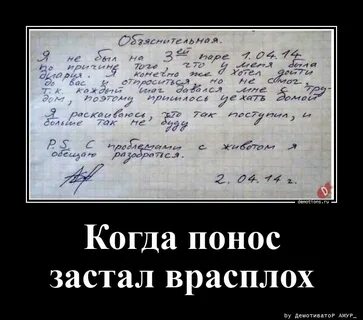 Обзяснительная.
Я не был на 3ей паре 1.04.14
по причине того, что у меня была
диария. Я конечно же хотел дойти
до вас и отпроситься, но не смог,
т.к. каждый шаг давался мне с тру-
дом, поэтому пришлось уехать домой
Я раскаиваюсь, что так поступил, и
больше так не буду
P.S. С проблемами с животом я
обещаю разобраться.
2.04.14 г.
demotions.ru
Когда понос
застал врасплох
by ДемотиватоР АМУР_